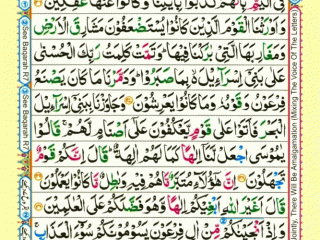 فِى الۡيَمِّ بِاَنَّهُمۡ كَذَّبُوۡا بِاٰيٰتِنَا وَكَانُوۡا عَنۡهَا غٰفِلِيۡنَ
وَاَوۡرَثۡنَا الۡقَوۡمَ الَّذِيۡنَ كَانُوۡا يُسۡتَضۡعَفُوۡنَ مَشَارِقَ الۡاَرۡضِ
وَمَغَارِبَهَا الَّتِىۡ بٰرَكۡنَا فِيۡهَا ؕ وَتَمَّتۡ كَلِمَتُ رَبِّكَ الۡحُسۡنٰى
عَلٰى بَنِىۡۤ اِسۡرَآءِيۡلَ ۙ بِمَا صَبَرُوۡا ؕ وَدَمَّرۡنَا مَا كَانَ يَصۡنَعُ
فِرۡعَوۡنُ وَقَوۡمُهٗ وَمَا كَانُوۡا يَعۡرِشُوۡنَ وَجَاوَزۡنَا بِبَنِىۡۤ اِسۡرَآءِيۡلَ
الۡبَحۡرَ فَاَتَوۡا عَلٰى قَوۡمٍ يَّعۡكُفُوۡنَ عَلٰٓى اَصۡنَامٍ لَّهُمۡ ۚ قَالُوۡا
يٰمُوۡسَى اجۡعَلْ لَّنَاۤ اِلٰهًا كَمَا لَهُمۡ اٰلِهَةٌ ؕ قَالَ اِنَّكُمۡ قَوۡمٌ
تَجۡهَلُوۡنَ اِنَّ هٰٓؤُلَآءِ مُتَبَّرٌ مَّا هُمۡ فِيۡهِ وَبٰطِلٌ مَّا كَانُوۡا يَعۡمَلُوۡنَ
قَالَ اَغَيۡرَ اللّٰهِ اَبۡغِيۡكُمۡ اِلٰهًا وَّهُوَ فَضَّلَكُمۡ عَلَى الۡعٰلَمِيۡنَ
وَاِذۡ اَنۡجَيۡنٰكُمۡ مِّنۡ اٰلِ فِرۡعَوۡنَ يَسُوۡمُوۡنَكُمۡ سُوۡٓءَ الۡعَذَابِ
See Baqarah R7
See Baqarah R7
ointly, There Will Be Amalgamation (Mixing The Voice Of The Letters)